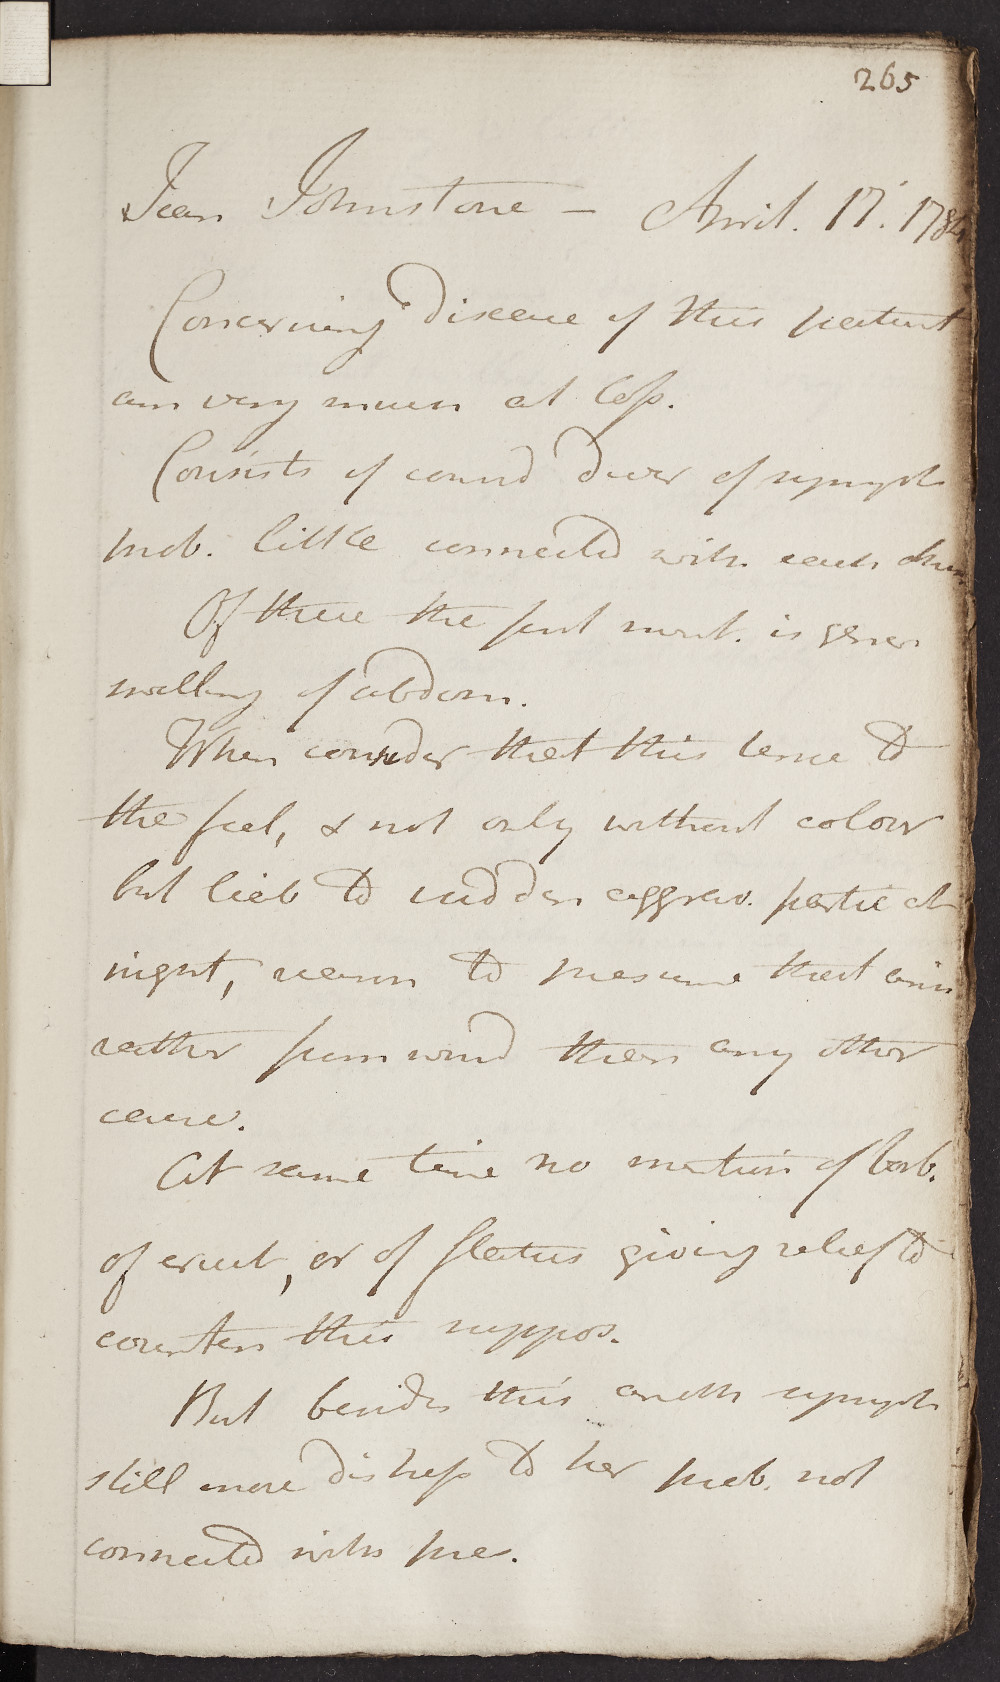 265
Jean Johnstone - April. 17. 1784
Concerning disease of this patient
am very much at loss.
Consists of considr diver of sympt
prob. little connected with each other
Of these the first ment. is gener
swelling of abdom.
When consider that this tense to
the feel, & not only without colour
but liab to sudden aggrav. partic at
night, reason to presume that arises
rather from wind than any other
cause.
At same time no mention of borb.
of eruct, or of flatus giving relief to
counten this suppos.
But besides this anoth sympt
still more distress to her prob. not
connected with pre.